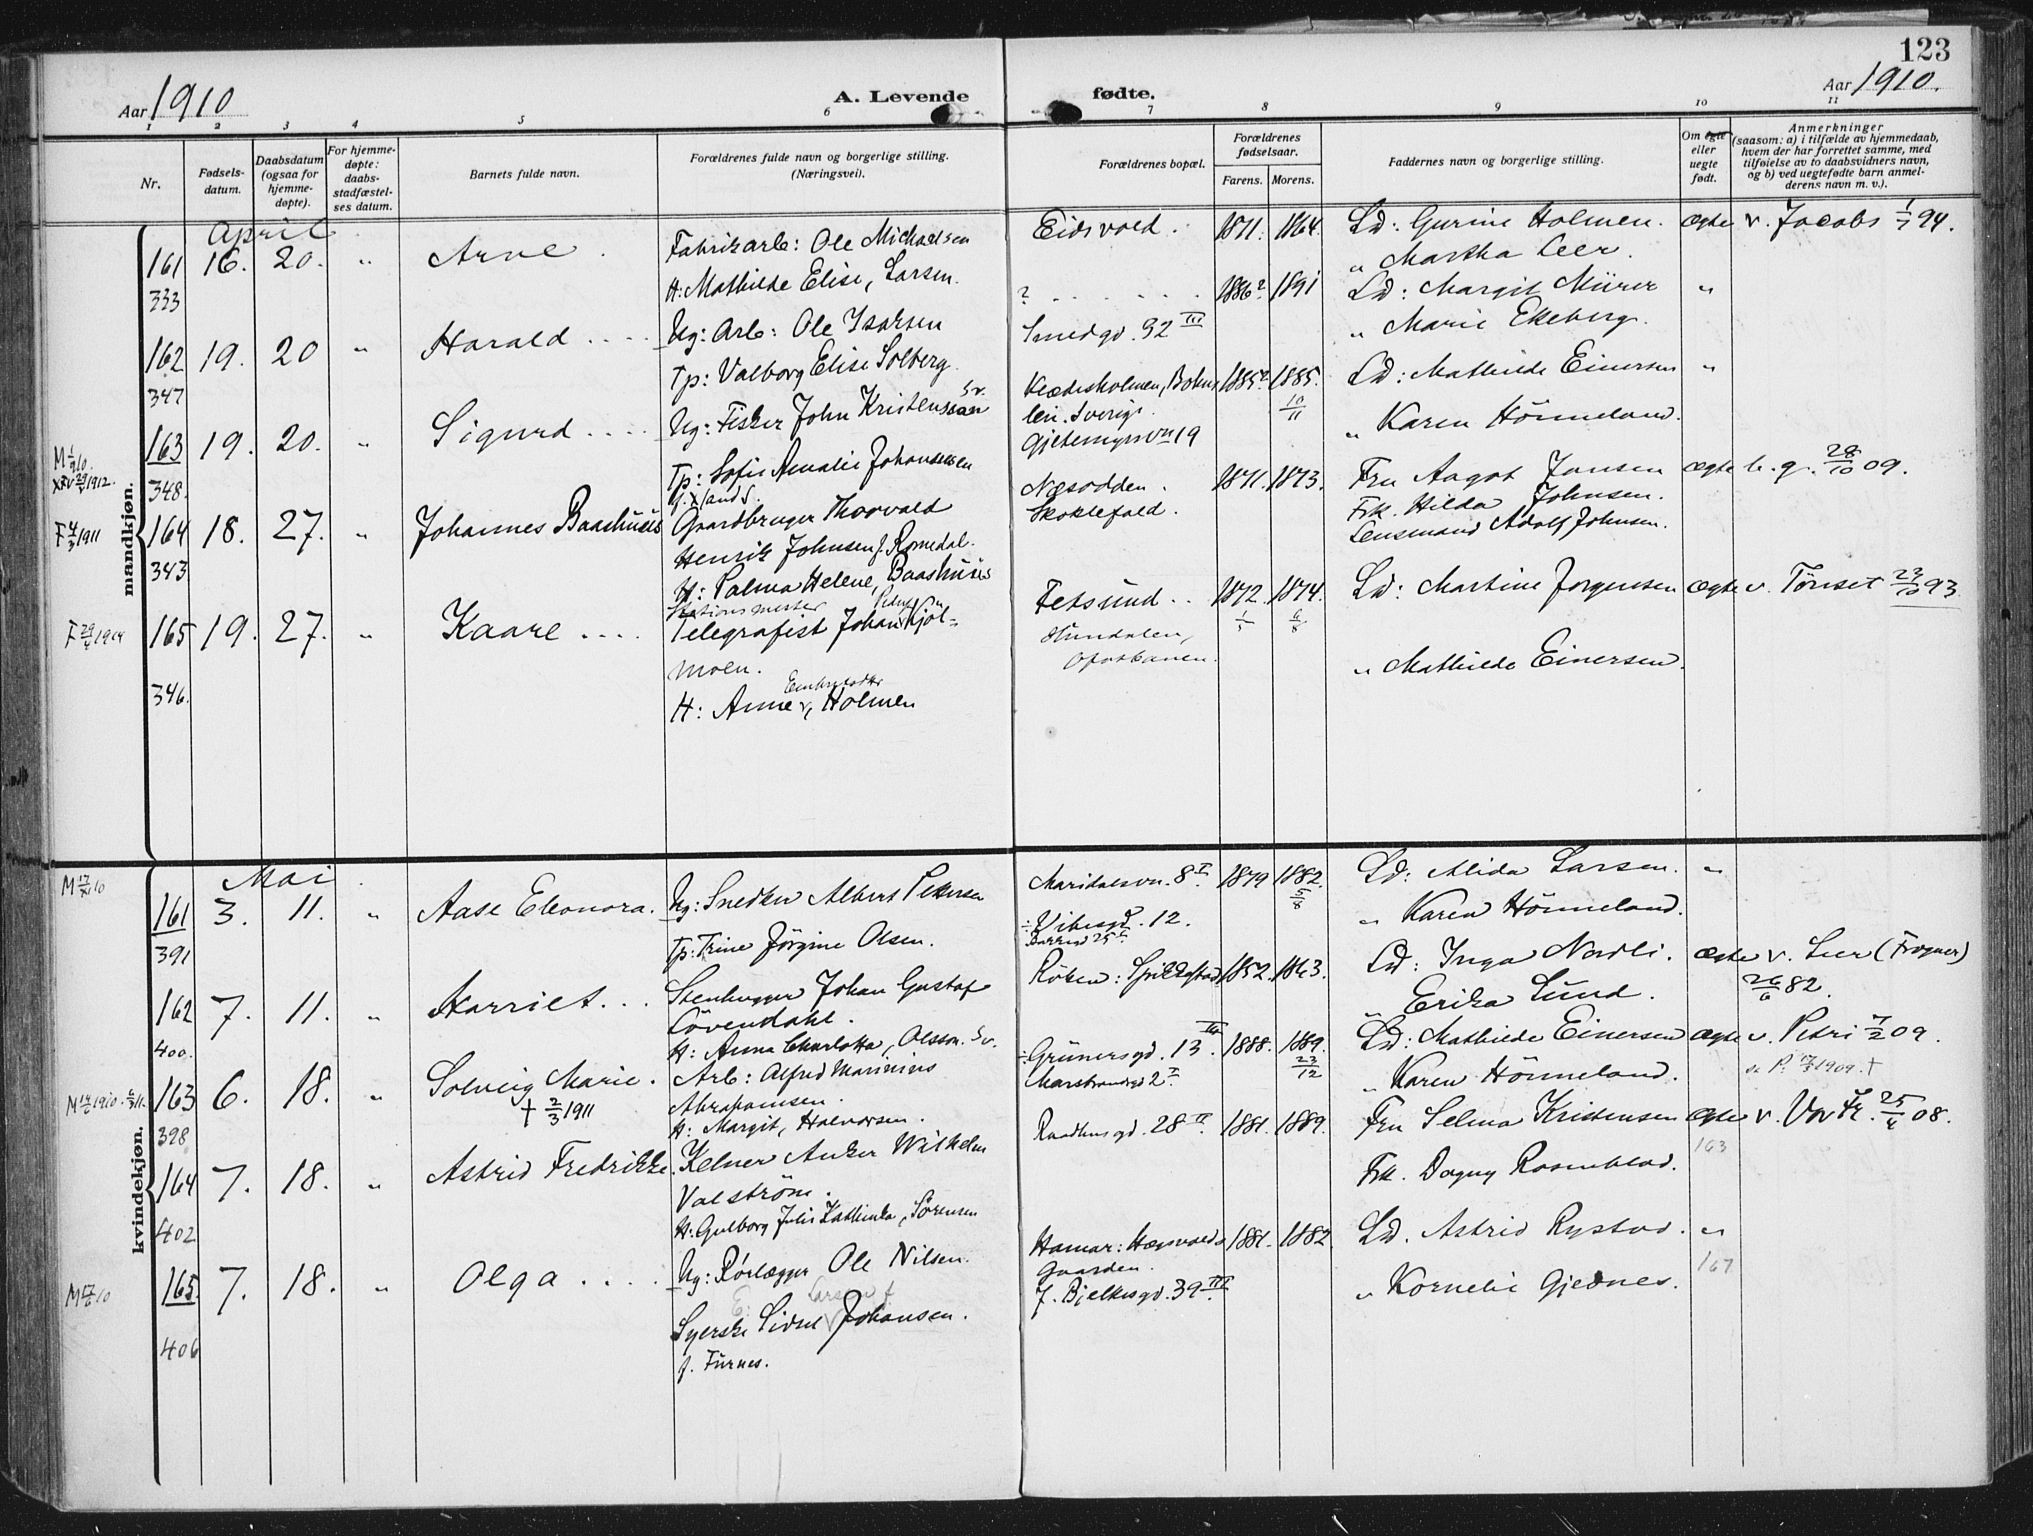 123
Aar 1910
A. Levende
fødte.
Aar 1910.
1 2 3 4 5 6 7 8 9 10 11
Nr.
Fødsels-
datum.
Daabsdatum
(ogsaa for
hjemme-
døpte).
For hjemme-
døpte:
daabs-
stadfæstel-
ses datum.
Barnets fulde navn.
Forældrenes fulde navn og borgerlige stilling.
(Næringsvei).
Forældrenes bopæl.
Forældrenes
fødselsaar.
Farens. Morens.
Faddernes navn og borgerlige stilling.
Om egte
eller
uegte
født.
Anmerkninger
(saasom: a) i tilfælde av hjemmedaab,
hvem der har forrettet samme, med
tilføielse av to daabsvidners navn,
og b) ved uegtefødte barn anmel-
derens navn m. v.).
mandkjøn.
April
161 16. 20. " Arne
333
Fabrikarb: Ole Michaelsen
H: Mathilde Elise, Larsen.
Eidsvold. 1871. 1864.
Ld: Gurine Holmen. ægte v. Jacobs 1/7 94.
" Martha Leer.
162 19. 20 " Harald
347
Ug: Arb: Ole Isaksen
Tp: Valborg Elise Solberg.
? 1886? 1891
Smedgd. 32 III
Ld: Margit Mürer "
" Marie Ekeberg.
163 19. 20. " Sigurd
348.
Ug: Fisker John Kristenssan Sv.
Tp: Sofie Amalie Johannesen
Klædesholmen, Bohus 1885? 1885.
len. Sverige. 10/11
Gjetemyrsvn 19
Ld: Mathilde Einersen "
" Karen Hönneland.
F 4/3 1911
164 18. 27. " Johannes Baashuus
343
Gaardbruger Thorvald
Henrik Johnsen f. Romedal.
H: Palma Helene, Baashuus
Næsodden. 1871. 1873.
Skoklefald.
Fru Aagot Jansen ægte b. g. 28/10 09.
Frk. Hilda Johnsen.
Lensmand Adolf Johnsen.
165 19. 27. " Kaare
346.
Stationsmester
Telegrafist Johan Kjöl=
moen.
H: Anne, Holmen
Fetsund 1872. 1874.
Hundalen, 6/8
Ofotbanen.
Ld: Martine Jorgensen ægte v. Tönset 23/10 93
" Mathilde Einersen.
kvindekjøn.
Mai
161 3. 11. " Aase Eleonora.
391
Ug: Snedker Albert Petersen
Tp: Trine Jörgine Olsen.
Maridalsvn. 8 I. 1879 1882.
5/8
Vibesgd. 12.
Ld: Alida Larsen. "
" Karen Hönneland.
162 7. 11. " Harriet
400.
Stenhugger Johan Gustaf
Lövendahl.
H: Anna Charlotta, Olsson. Sv.
Röken: Spikkestad 1852. 1863.
Ld: Inga Nordli. ægte v. Lier (Frogner)
" Erika Lund. 26/6 82.
163 6. 18. " Solveig Marie.
† 2/3 1911
398
Arb: Alfred Marinius
Abrahamsen.
H: Margit, Halvorsen.
Grünersgd. 13 IV. 1888. 1889.
23/12
Marstrandgd 2 I
Ld: Mathilde Einersen ægte v. Petri 7/2 09.
" Karen Hönneland.
164 7. 18. " Astrid Fredrikke.
402
Kelner Anker Wilhelm
Valström.
H: Gulborg Julie Kathinka, Sörensen
Raadhusgd. 28 II. 1881. 1889.
Fru Selma Kristensen ægte v. Vor Fr. 25/4 08.
163
Frk. Dagny Rosenblad.
165. 7. 18. " Olga
406
Ug: Rörlægger Ole Nilsen.
Larsen f
Syerske Sidsel Johansen.
f. Furnes.
Hamar: Hægsvolds 1881. 1882.
Gaarden.
J. Bjelkesgd. 39 III
Ld. Astrid Rystad. "
167
" Kornelie Gjednes.